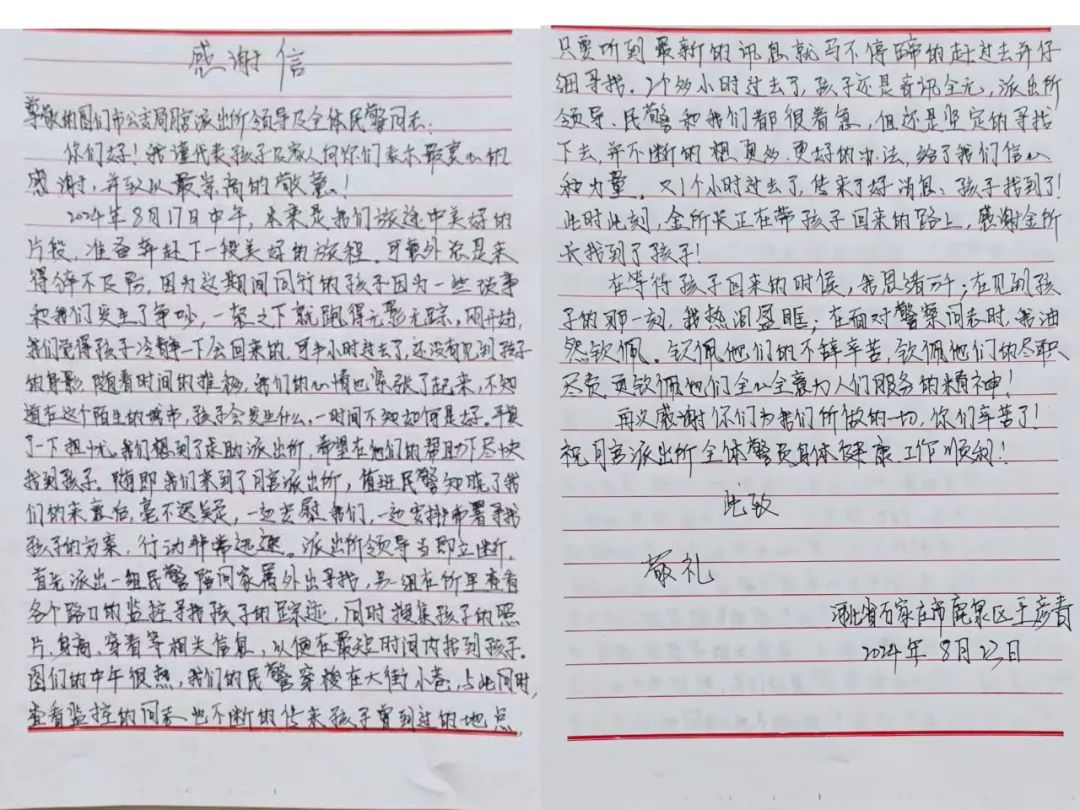 感谢信
尊敬的图们市公安局月宫派出所领导及全体民警同志:
你们好!我谨代表孩子及家人向你们表示最衷心的
感谢,并致以最崇高的敬意!
2024年8月17日中午,本来是我们旅途中美好的
片段,准备奔赴下一段美好的旅程。可意外总是来
得猝不及防,因为这期间同行的孩子因为一些琐事
和我们发生了争吵,一气之下就跑得无影无踪,刚开始,
我们觉得孩子冷静一下会回来的,可半小时过去了,还没有见到孩子
的身影,随着时间的推移,我们的心情也紧张了起来,不知
道在这个陌生的城市,孩子会发生什么,一时间不知如何是好。平复
了一下担忧,我们想到了求助派出所,希望在他们的帮助下尽快
找到孩子。随即我们来到了月宫派出所,值班民警知晓了我
们的来意后,毫不迟疑,一边安慰我们,一边安排布署寻找
孩子的方案,行动非常迅速。派出所领导当即立断,
首先派出一组民警陪同家属外出寻找,另一组在所里查看
各个路口的监控寻找孩子的踪迹,同时搜集孩子的照
片、身高、穿着等相关信息,以便在最短时间内找到孩子。
图们的中午很热,我们的民警穿梭在大街小巷,与此同时,
查看监控的同志也不断的传来孩子曾到过的地点,
只要听到最新的讯息就马不停蹄的赶过去并仔
细寻找。2个多小时过去了,孩子还是音讯全无,派出所
领导、民警和我们都很着急,但还是坚定的寻找
下去,并不断的想更多、更好的办法,给了我们信心
和力量。又1个小时过去了,传来了好消息、孩子找到了!
此时此刻,金所长正在带孩子回来的路上,感谢金所
长找到了孩子!
在等待孩子回来的时候,我思绪万千;在见到孩
子的那一刻,我热泪盈眶;在面对警察同志时,我油
然钦佩。钦佩他们的不辞辛苦,钦佩他们的尽职
尽责,更钦佩他们全心全意为人们服务的精神!
再次感谢你们为我们所做的一切,你们辛苦了!
祝月宫派出所全体警员身体健康,工作顺利!
此致
敬礼
河北省石家庄市鹿泉区王彦青
2024年8月23日